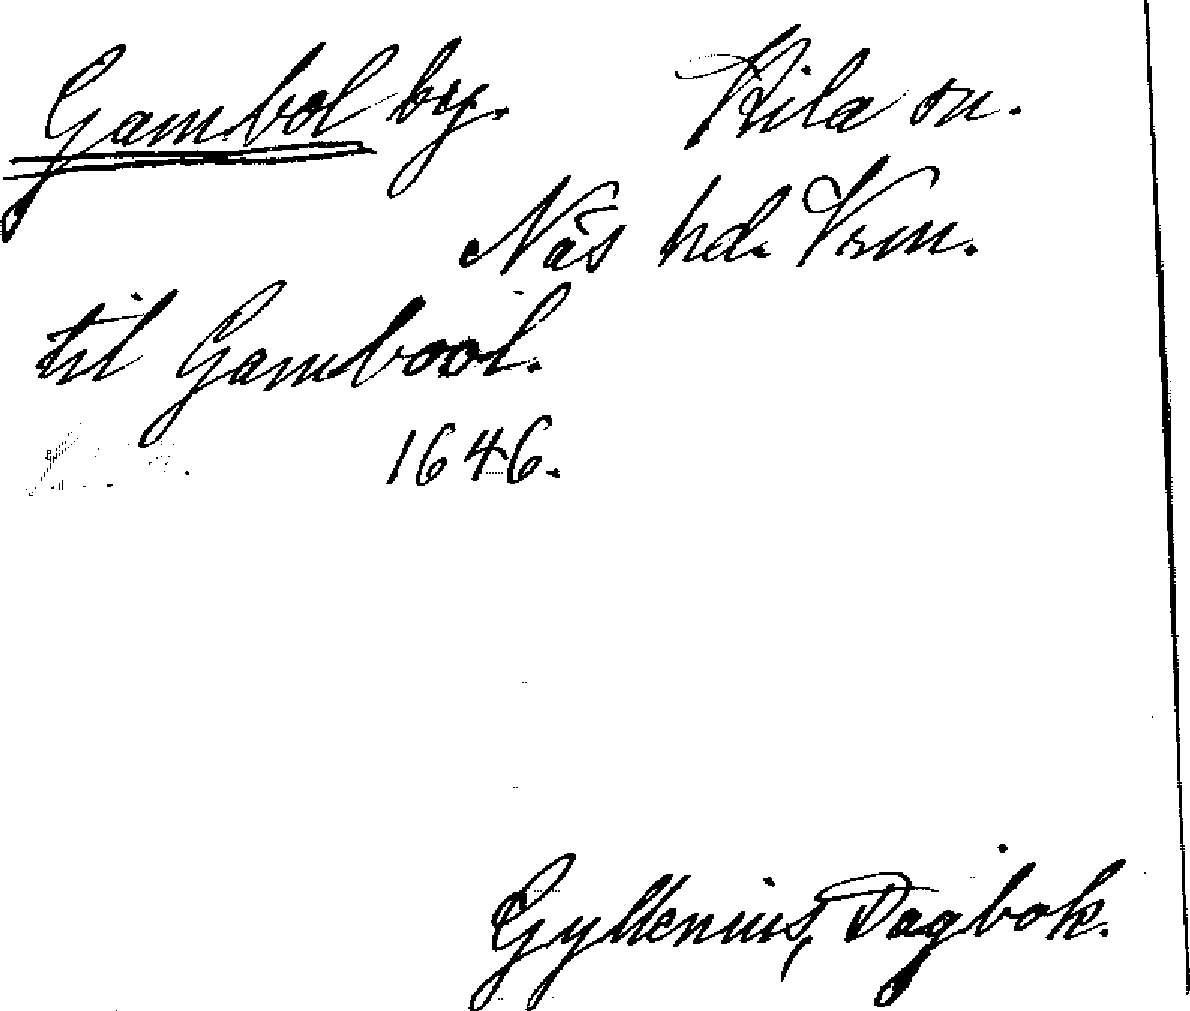 Gambol by. Kila sn.
Näs hd. Vrm.
til Gambool.
1646.
Gyllenius, Dagbok.